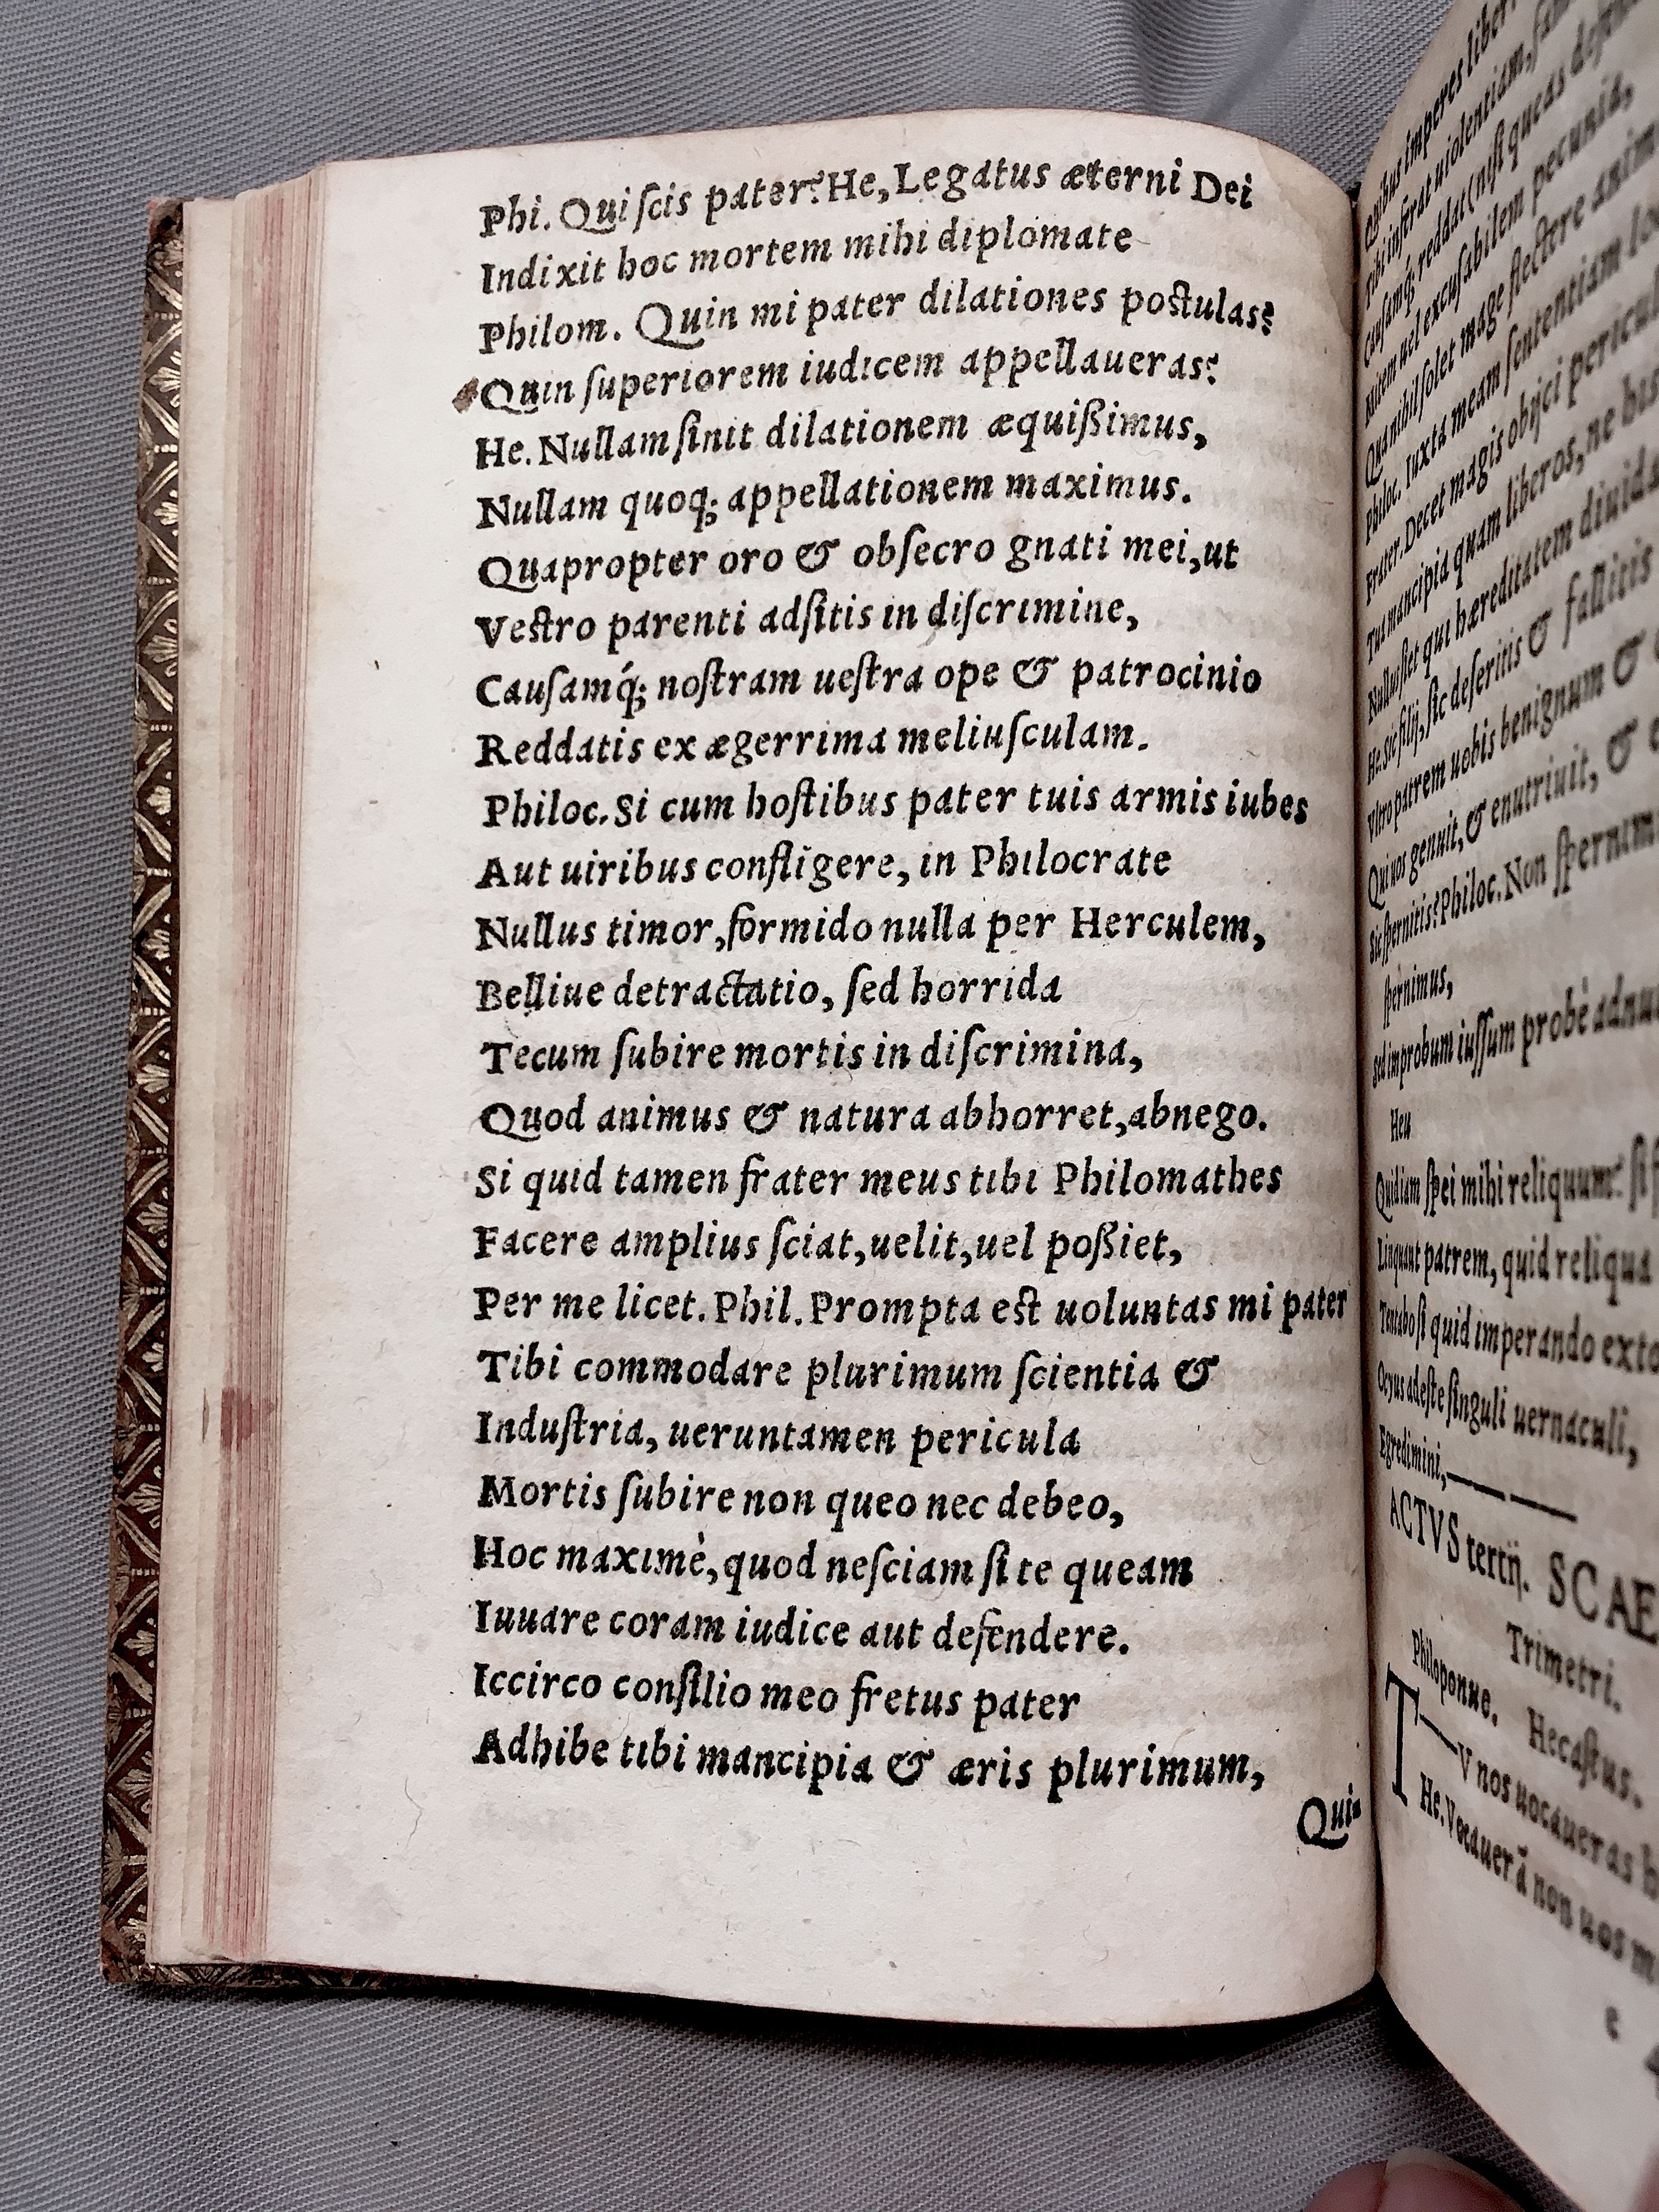 Phi. Qui ſcis pater? He, Legatus æterni Dei
Indixit hoc mortem mihi diplomate
Philom. Quin mi pater dilationes poſtulas?
Quin ſuperiorem iudicem appellaueras?
He. Nullam ſinit dilationem æquißimus,
Nullam quoq; appellationem maximus.
Quapropter oro & obſecro gnati mei, ut
Veſtro parenti adſitis in diſcrimine,
Cauſamq́; noſtram ueſtra ope & patrocinio
Reddatis ex ægerrima meliuſculam.
Philoc. Si cum hoſtibus pater tuis armis iubes
Aut uiribus confligere, in Philocrate
Nullus timor, formido nulla per Herculem,
Belliue detractatio, ſed horrida
Tecum ſubire mortis in diſcrimina,
Quod animus & natura abhorret, abnego.
Si quid tamen frater meus tibi Philomathes
Facere amplius ſciat, uelit, uel poßiet,
Per me licet. Phil. Prompta eſt uoluntas mi pater
Tibi commodare plurimum ſcientia &
Induſtria, ueruntamen pericula
Mortis ſubire non queo nec debeo,
Hoc maximè, quod neſciam ſi te queam
Iuuare coram iudice aut defendere.
Iccirco conſilio meo fretus pater
Adhibe tibi mancipia & æris plurimum,
Qui
Quibus imperes
Tibi inferat uiolentiam,
Cauſamq́; reddat (niſi queas
Autem uel excuſabilem pecunia,
Quam nihil ſolet mage flectere
Philoc. Iuxta meam ſententiam
Frater. Decet magis obijci
Tua mancipia quam liberos, ne
Nullus ſiet qui hæreditatem
He. Sic filij, ſic deſeritis & fallitis
Vltro patrem uobis benignum &
Qui uos genuit, & enutriuit, &
Sic ſpernitis? Philoc. Non
ſpernimus,
Sed improbum iuſſum probè
Heu
Quid iam ſpei mihi reliquum?
Linquunt patrem, quid reliqua
Tentabo ſi quid imperando
Ocyus adeſte ſinguli uernaculi,
Egredimini,
ACTVS tertij. SCAE
Trimetri.
Philoponus. Hecaſtus.
TV nos uocaueras
He. Vocauerā non uos
e